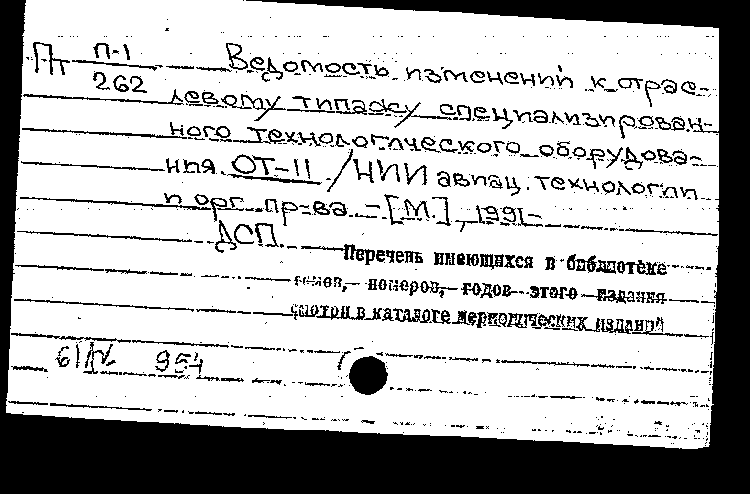 Пт П-1 Ведомость изменений к отрас-
262 левому типажу специализирован-
ного технологического оборудова-
ния ОТ-11 / НИИ авиац. технологии
и орг. пр-ва. - [М.], 1991-
ДСП
Перечень имеющихся в библиотеке
томов, номеров, годов этого издания
смотри в каталоге периодических изданий
954